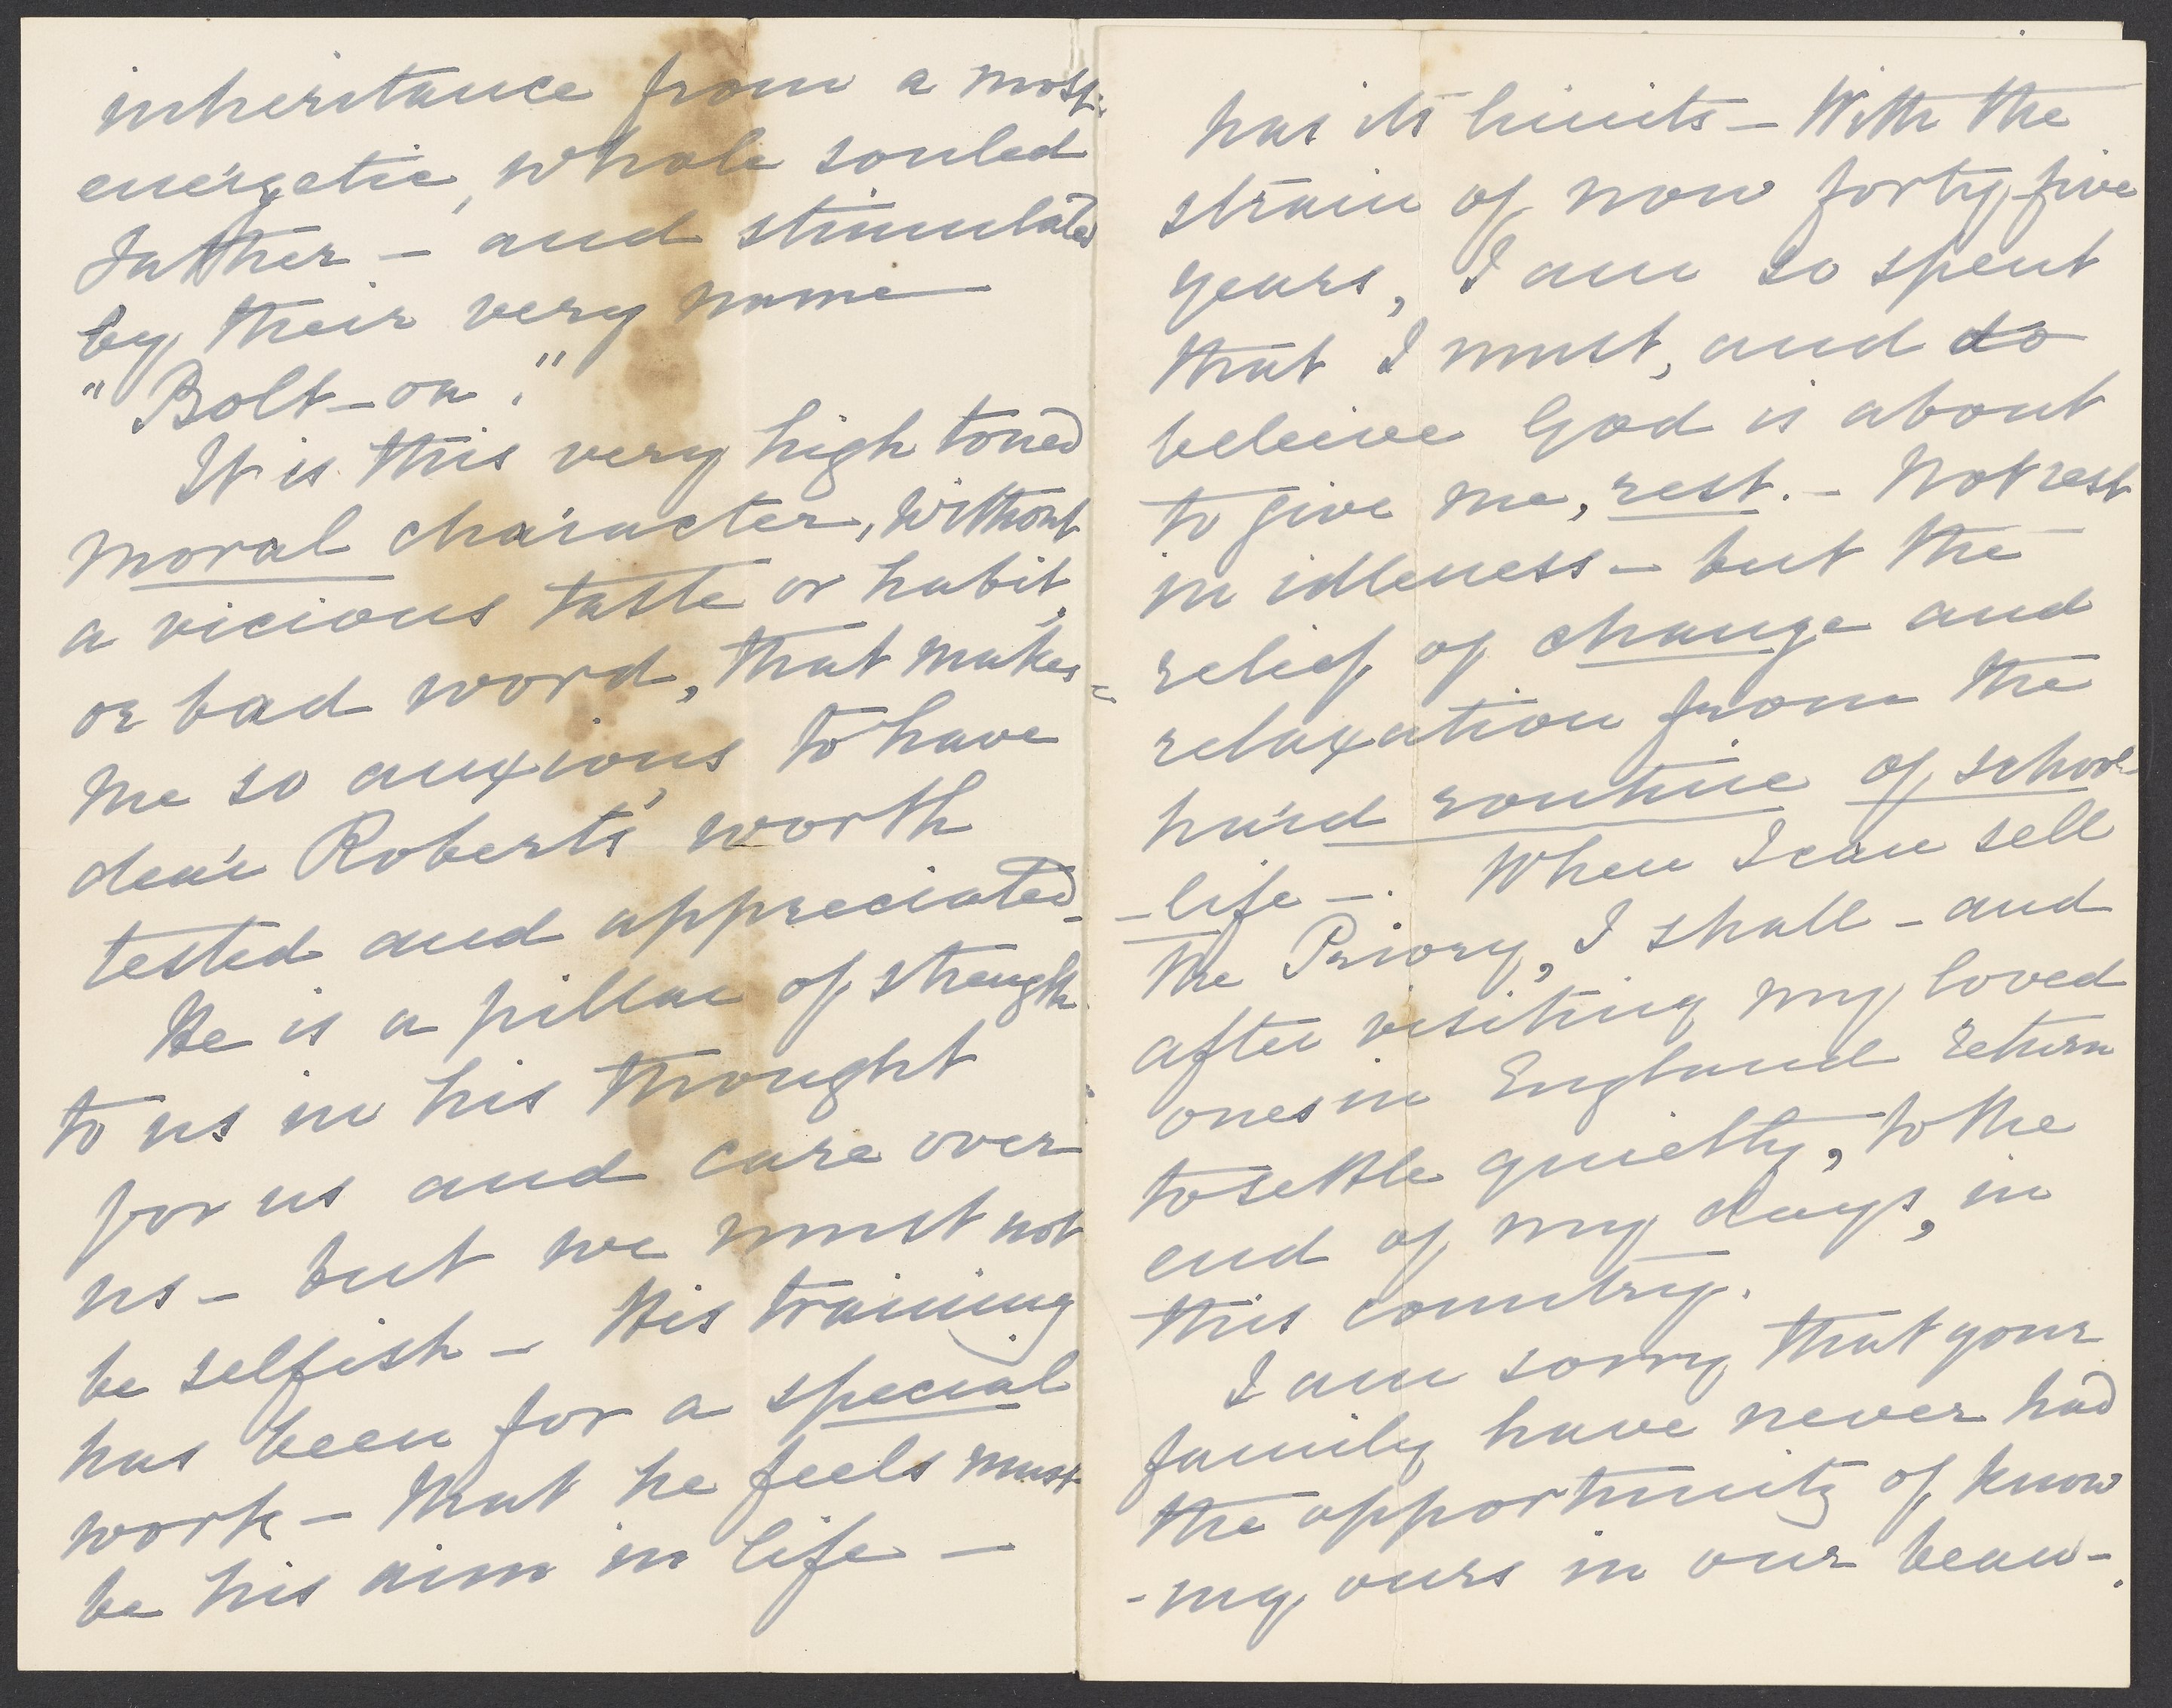 inheritance from a most
energetic, whole souled
Father – and stimulated
by their very name
"Bolt-on."
It is this very high toned
moral character, without
a vicious taste or habit,
or bad word, that makes
me so anxious to have
dear Robert's worth
tested and appreciated –
He is a pillar of strength
to us in his thought
for us and care over
us – but we must not
be selfish – His training
has been for a special
work – that he feels must
be his aim in life –
has its limits – With the
strain of now forty-five
years, I am so spent
that I must, and do
beleive God is about
to give me, rest. – Not rest
in idleness – but the
relief of change and
relaxation from the
hard routine of school
-life –. When I can sell
the Priory, I shall – and
after visiting my loved
ones in England return
to settle quietly, to the
end of my days, in
this country.
I am sorry that your
family have never had
the opportunity of know
-ing ours in our beau-